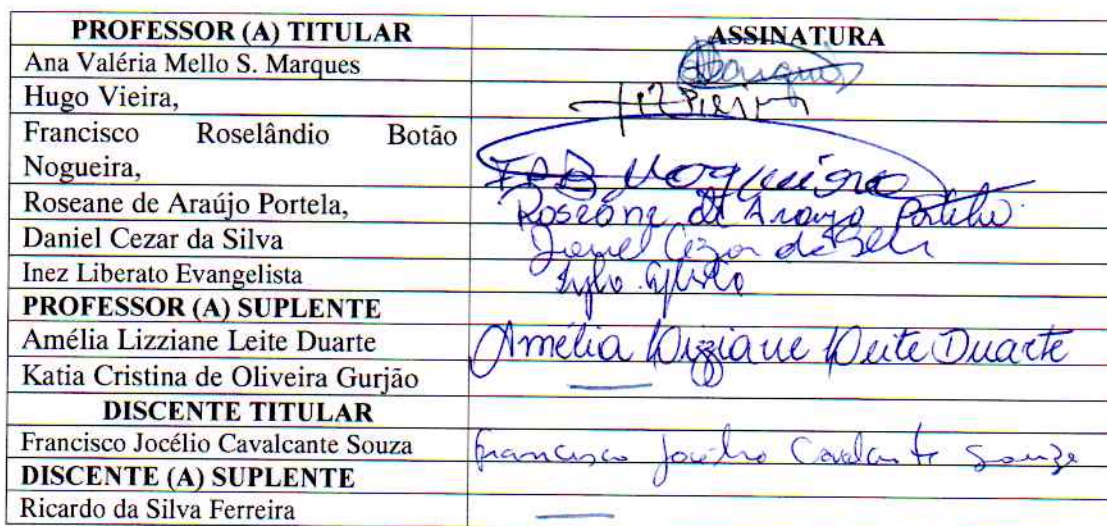 PROFESSOR (A) TITULAR ASSINATURA
Ana Valéria Mello S. Marques Marques
Hugo Vieira,
Francisco Roselândio Botão
Nogueira, FRB Nogueira
Roseane de Araújo Portela, Roseane de Araujo Portela
Daniel Cezar da Silva Daniel Cezar da Silva
Inez Liberato Evangelista
PROFESSOR (A) SUPLENTE
Amélia Lizziane Leite Duarte Amélia Lizziane Leite Duarte
Katia Cristina de Oliveira Gurjão
DISCENTE TITULAR
Francisco Jocélio Cavalcante Souza Francisco Jocélio Cavalcante Souza
DISCENTE (A) SUPLENTE
Ricardo da Silva Ferreira